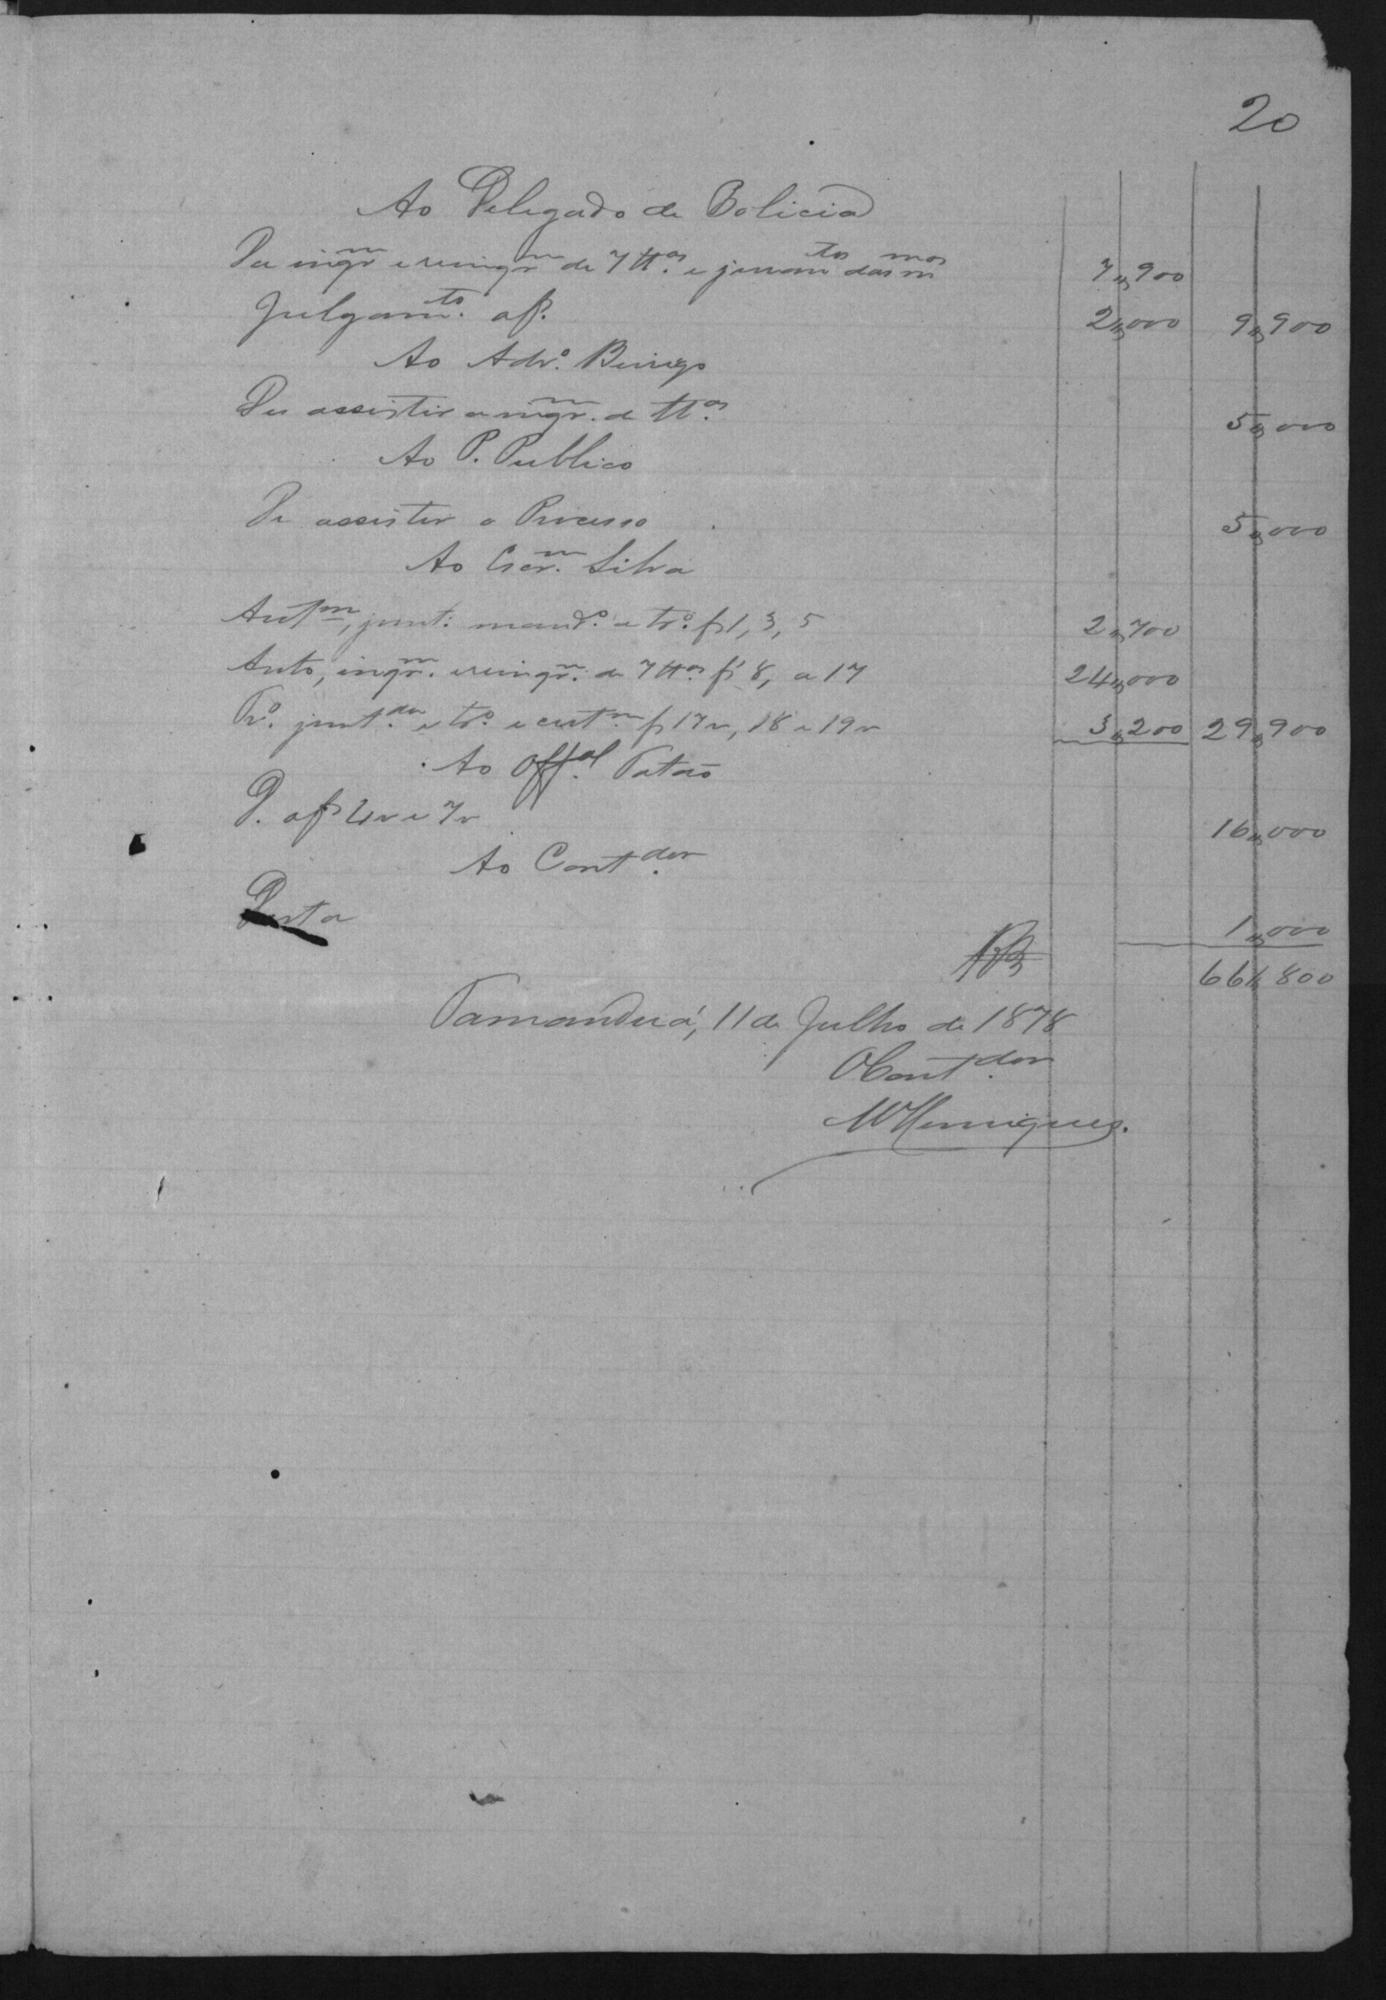 20
Ao Delegado de Policia
De inqr.m e reinqr.m de 7 tt.as e juram.tos das m.mas 7$900
Julgam.to af. 2$000 9$900
Ao Adv.o
De assistir a inqr.m de tt.as 5$000
Ao P. Publico
De assistir o Processo 5$000
Ao Escr.m Silva
Aut.m, junt. mand.o e tr.o f 1, 3, 5 2$700
Auto, inqr.m e reinqr.m de 7 tt.as f 8, a 17 24$000
Tr.o junt.da e tr.o e cert.m f 17v, 18 e 19v 3$200 29$900
Ao Off.al
D. a f 4v e 7v 16$000
Ao Cont.dor
Desta 1$000
66$800
Tamanduá, 11 de Julho de 1878
O Cont.dor
MHenriques.